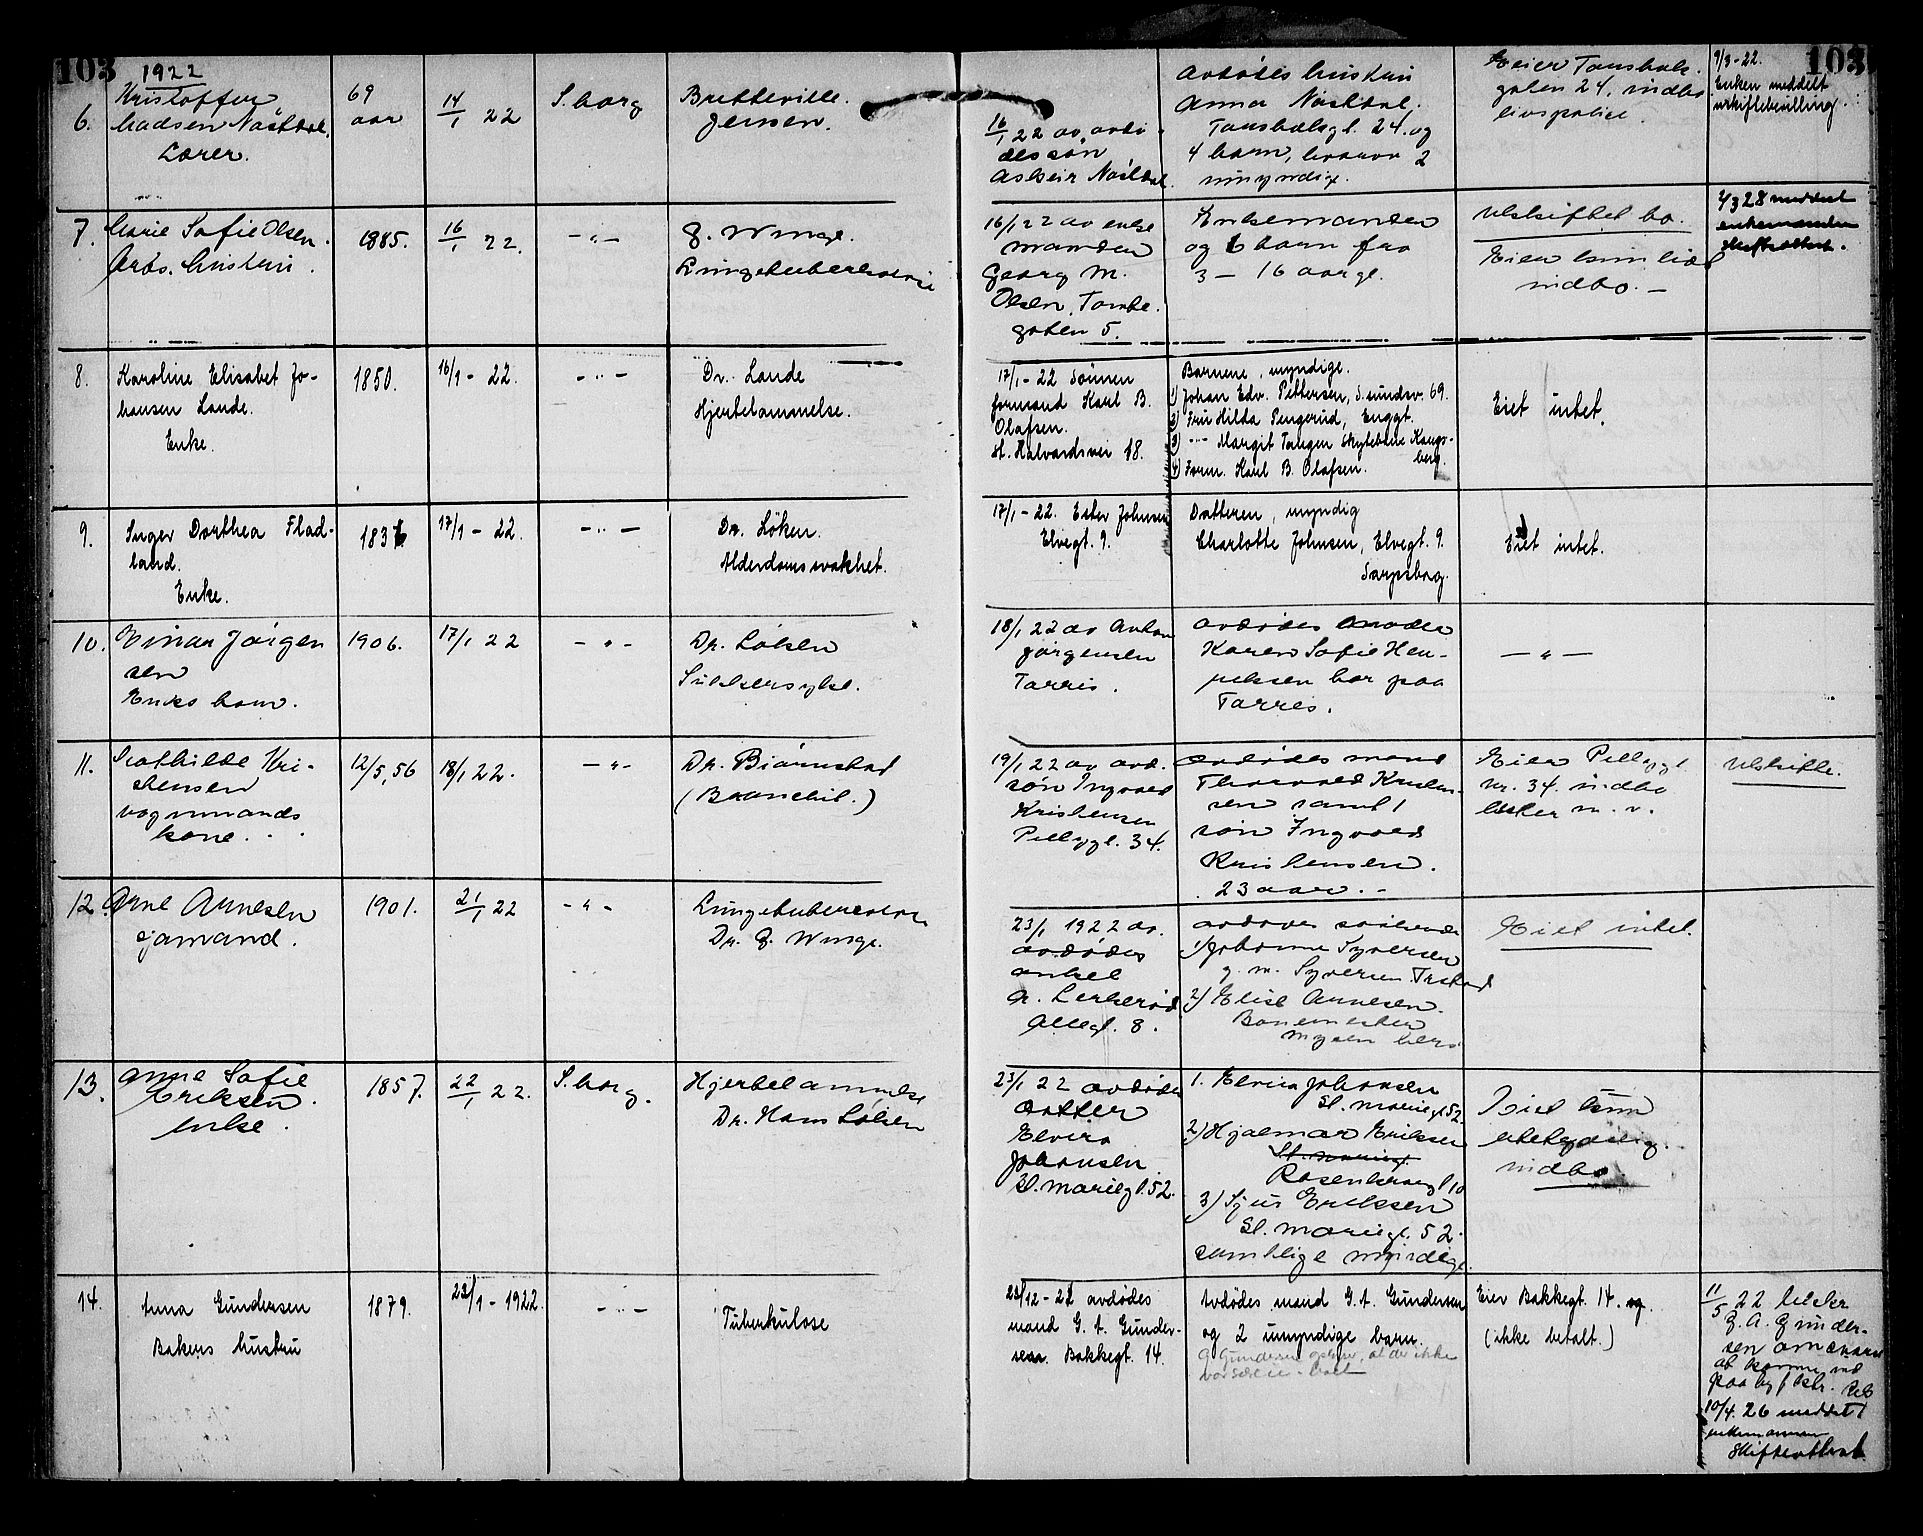 103
1922
103
6.
Kristoffer
Madsen Nastdal.
Lærer.
69
aar
14/1 22
S.borg
Bretteville.
Jensen.
16/1 22 av avdö-
des søn
Asbein Nastdal.
Avdödes hustru
Anna Nastdal.
4 barn, hvorav 2
umyndige.
Eier
gaten 24. indbo
livspolice.
9/3-22.
Enken meddelt
uskiftebevilling.
7.
Marie Sofie Olsen.
Arbs. hustru.
1885.
16/1 22.
-"-
G. Winge.
Lungetuberkulose
16/1 22 av enke
manden
Georg M.
Olsen, Tombe.
gaten 5.
Enkemanden
og 6 barn fra
3 - 16 aar gl.
Uskiftet bo.
Eier kun
indbo. -
4/3 28 meddelt
enkemanden
skifteattest.
8.
Karoline Elisabet Jo-
hansen Lande.
Enke.
1850.
16/1 - 22.
-"-
Dr. Lande
Hjertelammelse.
17/1 - 22 Sönnen
formand Karl B.
Olafsen.
St. Halvardsvei 18.
Barnene, myndige.
1) Johan Edv. Pettersen, S.sundsv. 69.
2) Fru Hilda Pengerud, Enggt.
3) -"- Margit Tangen Skytebane Kongs-
berg.
4) Form. Karl B. Olafsen.
Eiet intet.
9.
Inger Dorthea Flad-
land.
Enke.
17/1 - 22.
-"-
Dr. Löken.
Alderdomssvakhet.
17/1 - 22. Ester Johnsen
Elvegt. 9.
Datteren, myndig
Charlotte Johnsen, Elvegt. 9.
Sarpsborg.
Eiet intet.
10.
Einar Jörgen
sen
Enkes barn.
1906.
17/1 22
-"-
Dr. Löken
Sukkersyke.
18/1 22 av Anton
Jörgensen
Tarris.
Avdödes moder
Karen Sofie Hen-
riksen bor paa
Tarres.
-"-
11.
Mathilde Kri-
stensen
vognmands
kone.
12/5, 56
18/1 22.
-"-
Dr. Björnstad
(Bronchit.)
19/1 22 av avd.
søn Ingvald
Kristensen
Pellygt. 34.
Avdödes mand
Thorvald Kristen-
sen samt 1
søn Ingvald
Kristensen.
23 aar. -
Eier Pellygt
nr. 34. indbo
hester m. v.
Uskifte.
12.
Arne Arnesen
sjømand.
1901.
21/1 22
-"-
Lungetuberkulose
Dr. G. Winge.
23/1 1922 av.
avdødes
onkel
A. Lerkerød
Allegt. 8.
avdødes søskende
1) Johanne Syversen
g. m. Syversen
2) Elise Arnesen.
Eiet intet.
13.
Anne Sofie
Eriksen.
enke.
1857.
22/1 22.
S.borg.
Hjertelammelse
Dr. Hans Löken
23/1 22 avdøde
datter
Elvira
Johansen
St. Mariegt. 52.
1. Elvira Johansen
St. Mariegt 52.
2) Hjalmar Eriksen
St. Mariegt.
Rosenkrantzgt 10
3) Eriksen
St. Mariegt. 52.
samtlige myndige.
Eiet kun
ubetydelig
indbo
14.
Anna Gundersen
Bakers hustru
1879.
23/1 - 1922.
-"-
Tuberkulose
avdödes
mand G. A. Gunder-
sen. Bakkegt. 14.
Avdödes mand G. A. Gundersen
og 2 umyndige barn.
Gundersen opgiver, at der ikke
Eier Bakkegt. 14. og
(ikke betalt.)
11/5 22
G. A. Gunder-
sen
at komme ind
paa
10/4. 26 meddelt
enkemannen
skifteattest